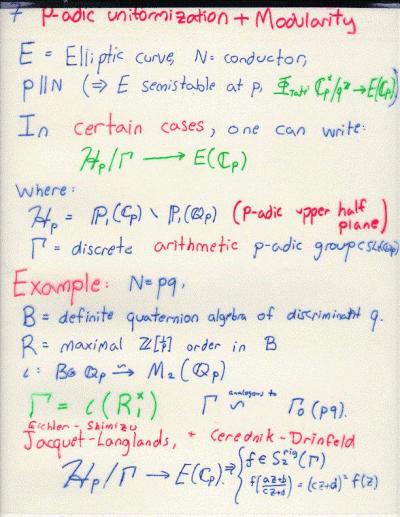 7 p-adic uniformization + Modularity
E = Elliptic curve, N = conductor,
p||N (⇒ E semistable at p, Φ_Tate: ℂ_p^×/q^ℤ → E(ℂ_p))
In certain cases, one can write:
ℋ_p/Γ → E(ℂ_p)
Where:
ℋ_p = ℙ_1(ℂ_p) \ ℙ_1(ℚ_p) (p-adic upper half plane)
Γ = discrete arithmetic p-adic group ⊂ SL_2(ℚ_p)
Example: N = pq,
B = definite quaternion algebra of discriminant q.
R = maximal ℤ[1/p] order in B
ι: B⊗ℚ_p ⥲ M_2(ℚ_p)
Γ = ι(R_1^×) Γ analogous to ∽ Γ_0(pq).
Eichler-Shimizu
Jacquet-Langlands, + Cerednik-Drinfeld
ℋ_p/Γ → E(ℂ_p). ⇒ { f ∈ S_2^rig(Γ)
f((az+b)/(cz+d)) = (cz+d)^2 f(z)